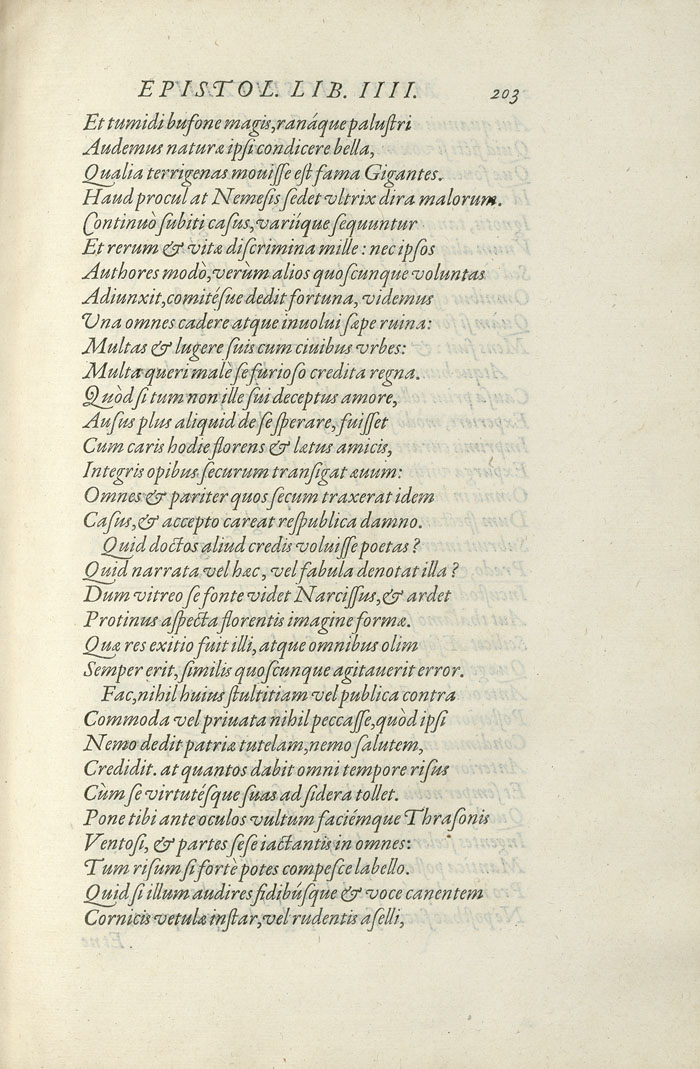 EPISTOL. LIB. IIII. 203
Et tumidi bufone magis, ranáque palustri
Audemus naturæ ipsi condicere bella,
Qualia terrigenas mouisse est fama Gigantes.
Haud procul at Nemesis sedet vltrix dira malorum.
Continuò subiti casus, variíque sequuntur
Et rerum & vitæ discrimina mille: nec ipsos
Authores modò, verùm alios quoscunque voluntas
Adiunxit, comitésue dedit fortuna, videmus
Vna omnes cadere atque inuolui sæpe ruina:
Multas & lugere suis cum ciuibus vrbes:
Multa queri malè se furioso credita regna.
Quòd si tum non ille sui deceptus amore,
Ausus plus aliquid de se sperare, fuisset
Cum caris hodie florens & lætus amicis,
Integris opibus securum transigat æuum:
Omnes & pariter quos secum traxerat idem
Casus, & accepto careat respublica damno.
Quid doctos aliud credis voluisse poetas?
Quid narrata vel hæc, vel fabula denotat illa?
Dum vitreo se fonte videt Narcissus, & ardet
Protinus aspecta florentis imagine formæ.
Quæ res exitio fuit illi, atque omnibus olim
Semper erit, similis quoscunque agitauerit error.
Fac, nihil huius stultitiam vel publica contra
Commoda vel priuata nihil peccasse, quòd ipsi
Nemo dedit patriæ tutelam, nemo salutem,
Credidit. at quantos dabit omni tempore risus
Cùm se virtutésque suas ad sidera tollet.
Pone tibi ante oculos vultum faciémque Thrasonis
Ventosi, & partes sese iactantis in omnes:
Tum risum si fortè potes compesce labello.
Quid si illum audires fidibúsque & voce canentem
Cornicis vetulæ instar, vel rudentis aselli,